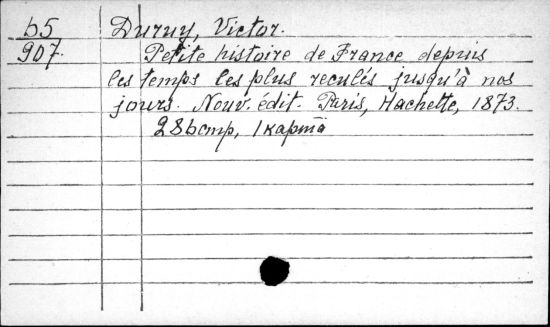 b5
907.
Duruy, Victor.
Petite histoire de France depuis
les temps les plus reculés jusqu'à nos
jours. Nouv. édit. Paris, Hachette, 1873.
286 стр, 1 карта